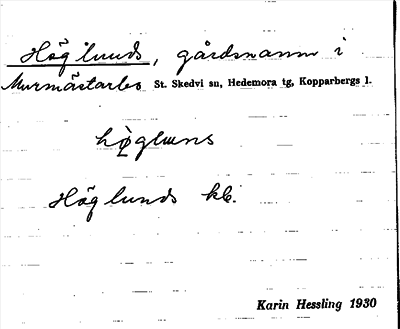 Höglunds, gårdsnamn i
Murmästarbo St. Skedvi sn, Hedemora tg, Kopparbergs l.
Höglunds kb.
Karin Hessling 1930